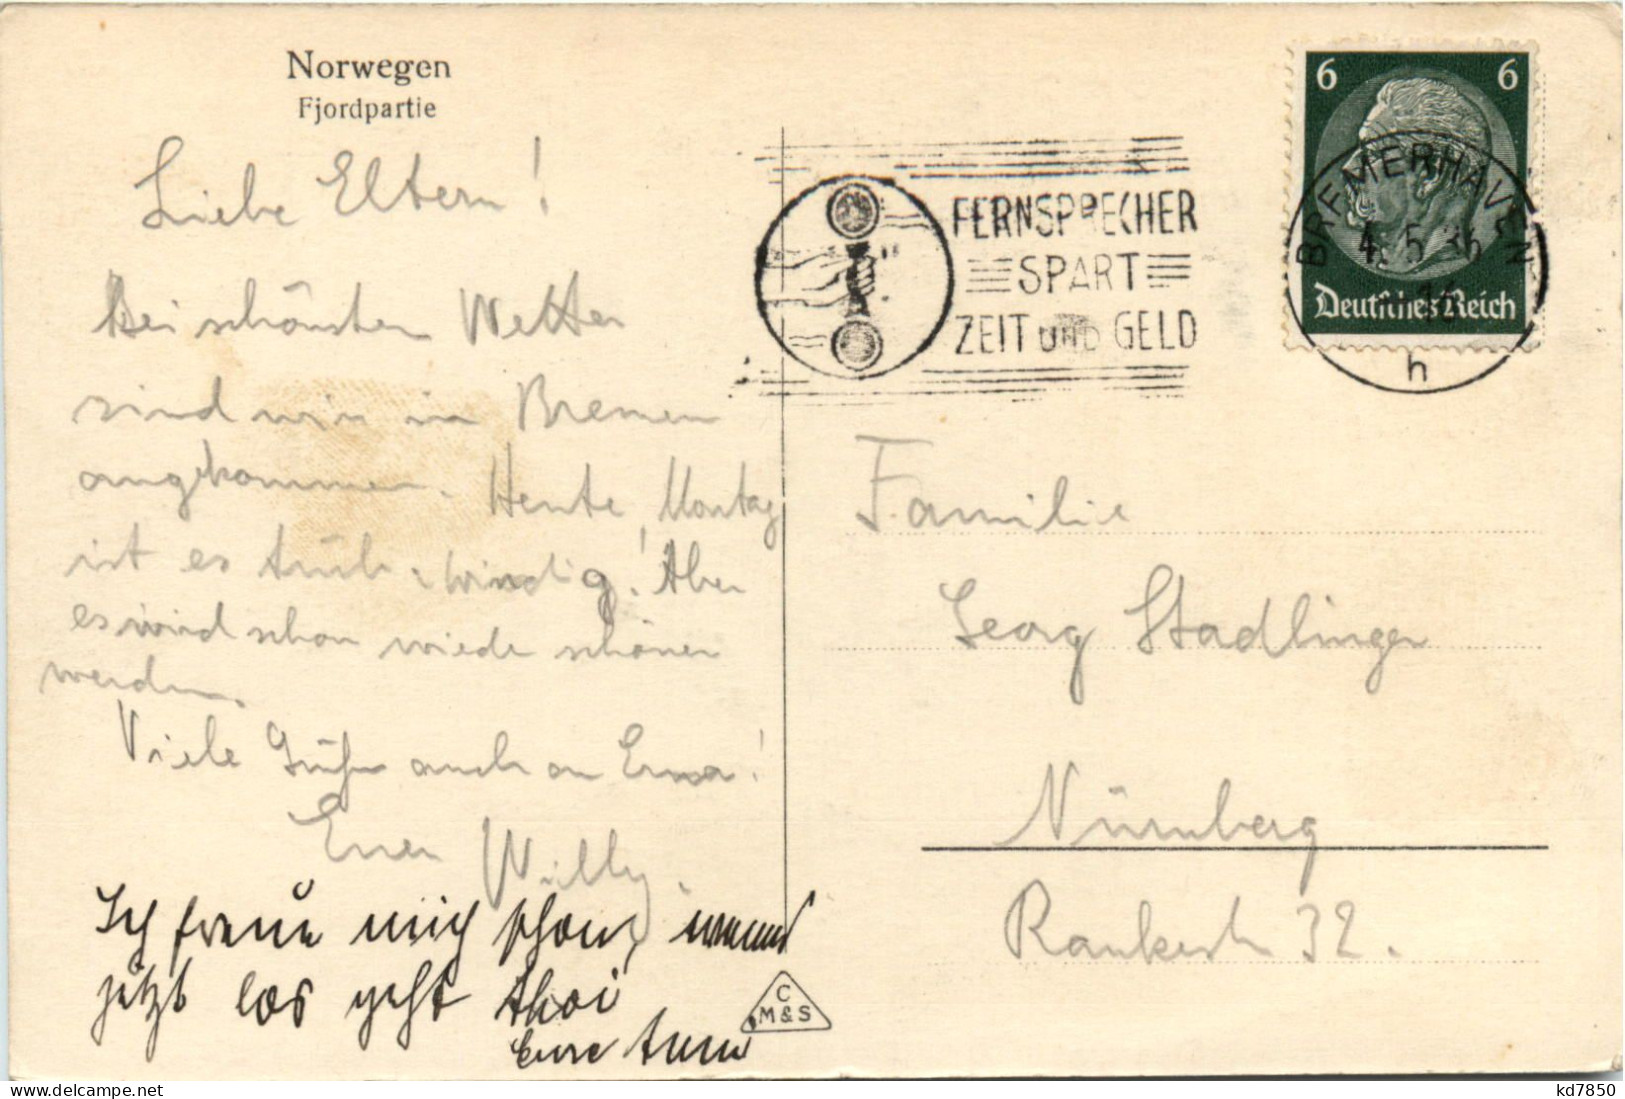 Norwegen
Fjordpartie
Liebe Eltern!
Bei schönsten Wetter
sind wir in Bremen
angekommen. Heute, Montag
ist es trüb, windig! Aber
es wird schon wieder schöner
werden.
Viele Grüße auch an Erna!
Euer Willy.
Ich freue mich schon, wenns
jetzt los geht Ahoi
Eure Anni
C
M&S
FERNSPRECHER
SPART
ZEIT UND GELD
BREMERHAVEN
4.5.36
h
6 6
Deutsches Reich
Familie
Georg Stadlinger
Nürnberg
Rankestr 32.
kd7850